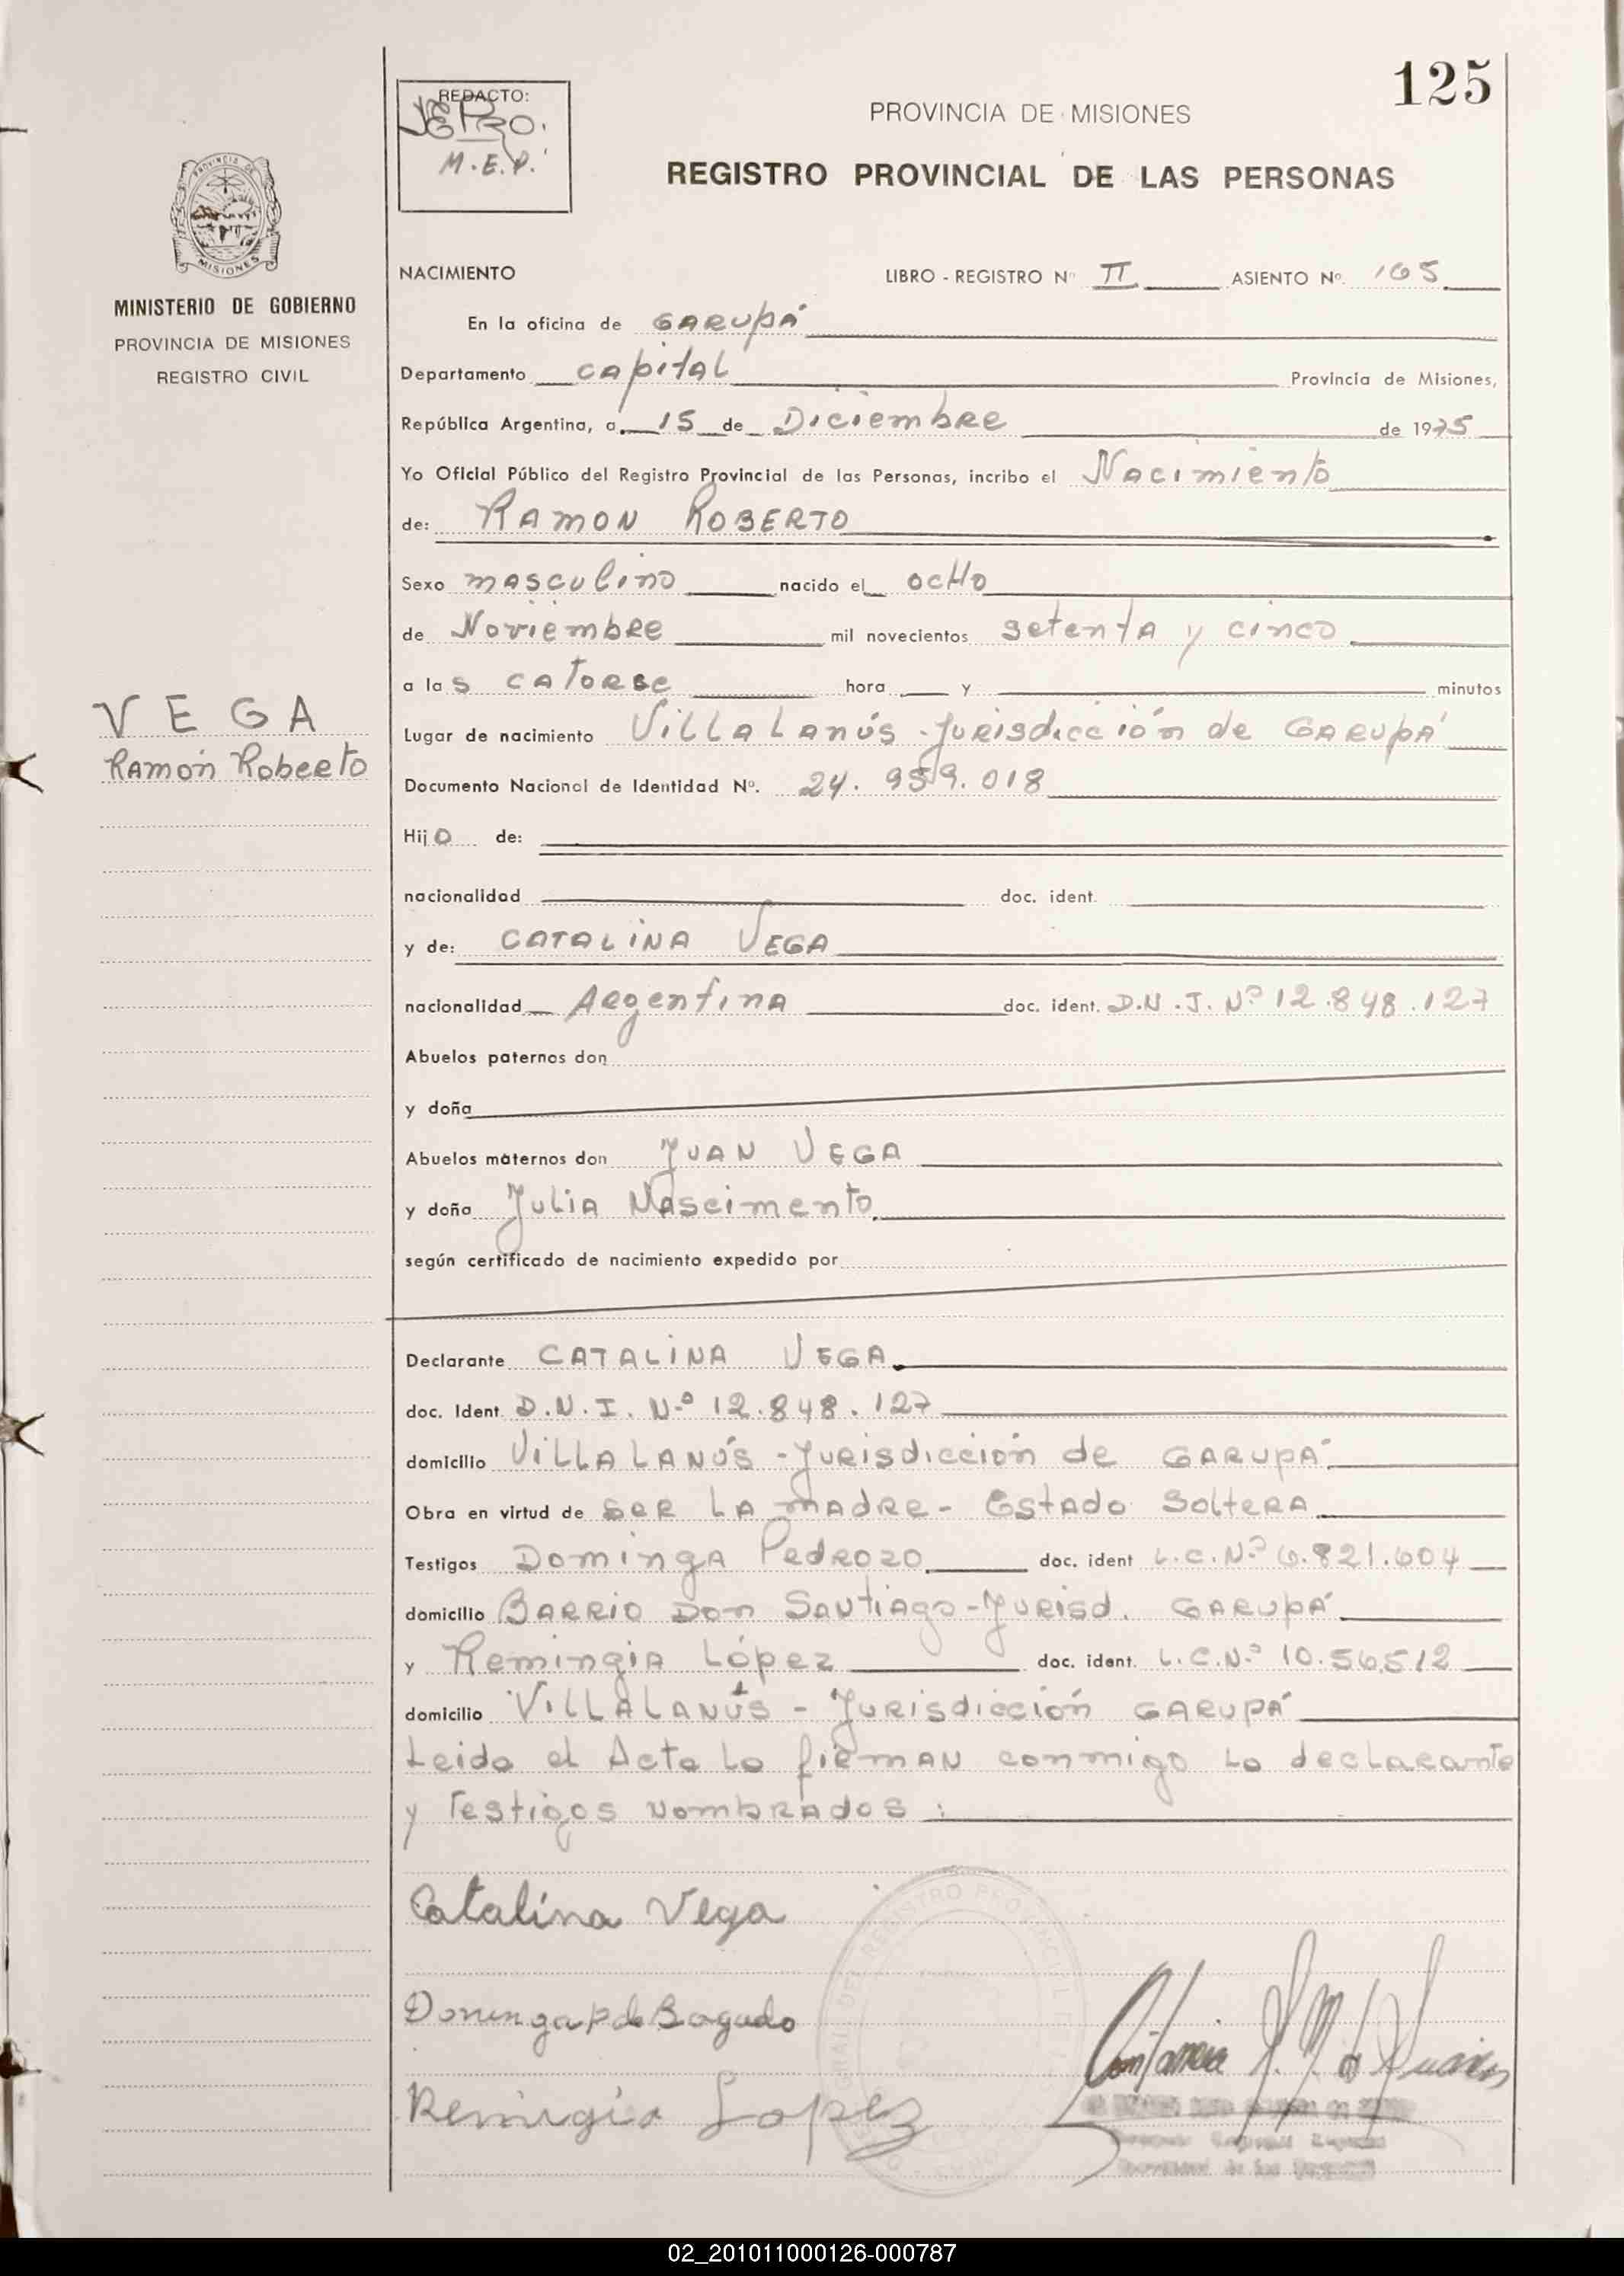 125
REDACTO:
M.E.P.
PROVINCIA DE MISIONES
REGISTRO PROVINCIAL DE LAS PERSONAS
MISIONES
MINISTERIO DE GOBIERNO
PROVINCIA DE MISIONES
REGISTRO CIVIL
NACIMIENTO LIBRO - REGISTRO Nº II ASIENTO Nº 165
En la oficina de GARUPÁ
Departamento CAPITAL Provincia de Misiones,
República Argentina, a 15 de Diciembre de 1975
Yo Oficial Público del Registro Provincial de las Personas, incribo el Nacimiento
de: RAMON ROBERTO
Sexo masculino nacido el OCHO
de Noviembre mil novecientos setenta y cinco
a las CATORSE hora y minutos
VEGA
Ramón Roberto
Lugar de nacimiento Villa Lanús - Jurisdicción de GARUPÁ
Documento Nacional de Identidad Nº. 24.959.018
Hijo de:
nacionalidad doc. ident.
y de: CATALINA VEGA
nacionalidad Argentina doc. ident. D.N.I. Nº 12.848.127
Abuelos paternos don
y doña
Abuelos maternos don JUAN VEGA
y doña Julia Nascimento
según certificado de nacimiento expedido por
Declarante CATALINA VEGA
doc. Ident. D.N.I. Nº 12.848.127
domicilio Villa Lanús - Jurisdicción de GARUPÁ
Obra en virtud de ser la madre - Estado Soltera
Testigos Dominga Pedrozo doc. ident L.C.Nº 6.821.604
domicilio Barrio Don Santiago - Jurisd. GARUPÁ
y Remingia López doc. ident. L.C.Nº 10.56.512
domicilio Villa Lanús - Jurisdicción GARUPÁ
Leida el Acta la firman conmigo la declarante
y Testigos nombrados:
Catalina Vega
Dominga P de Bogado
Remigia Lopez
02_201011000126-000787